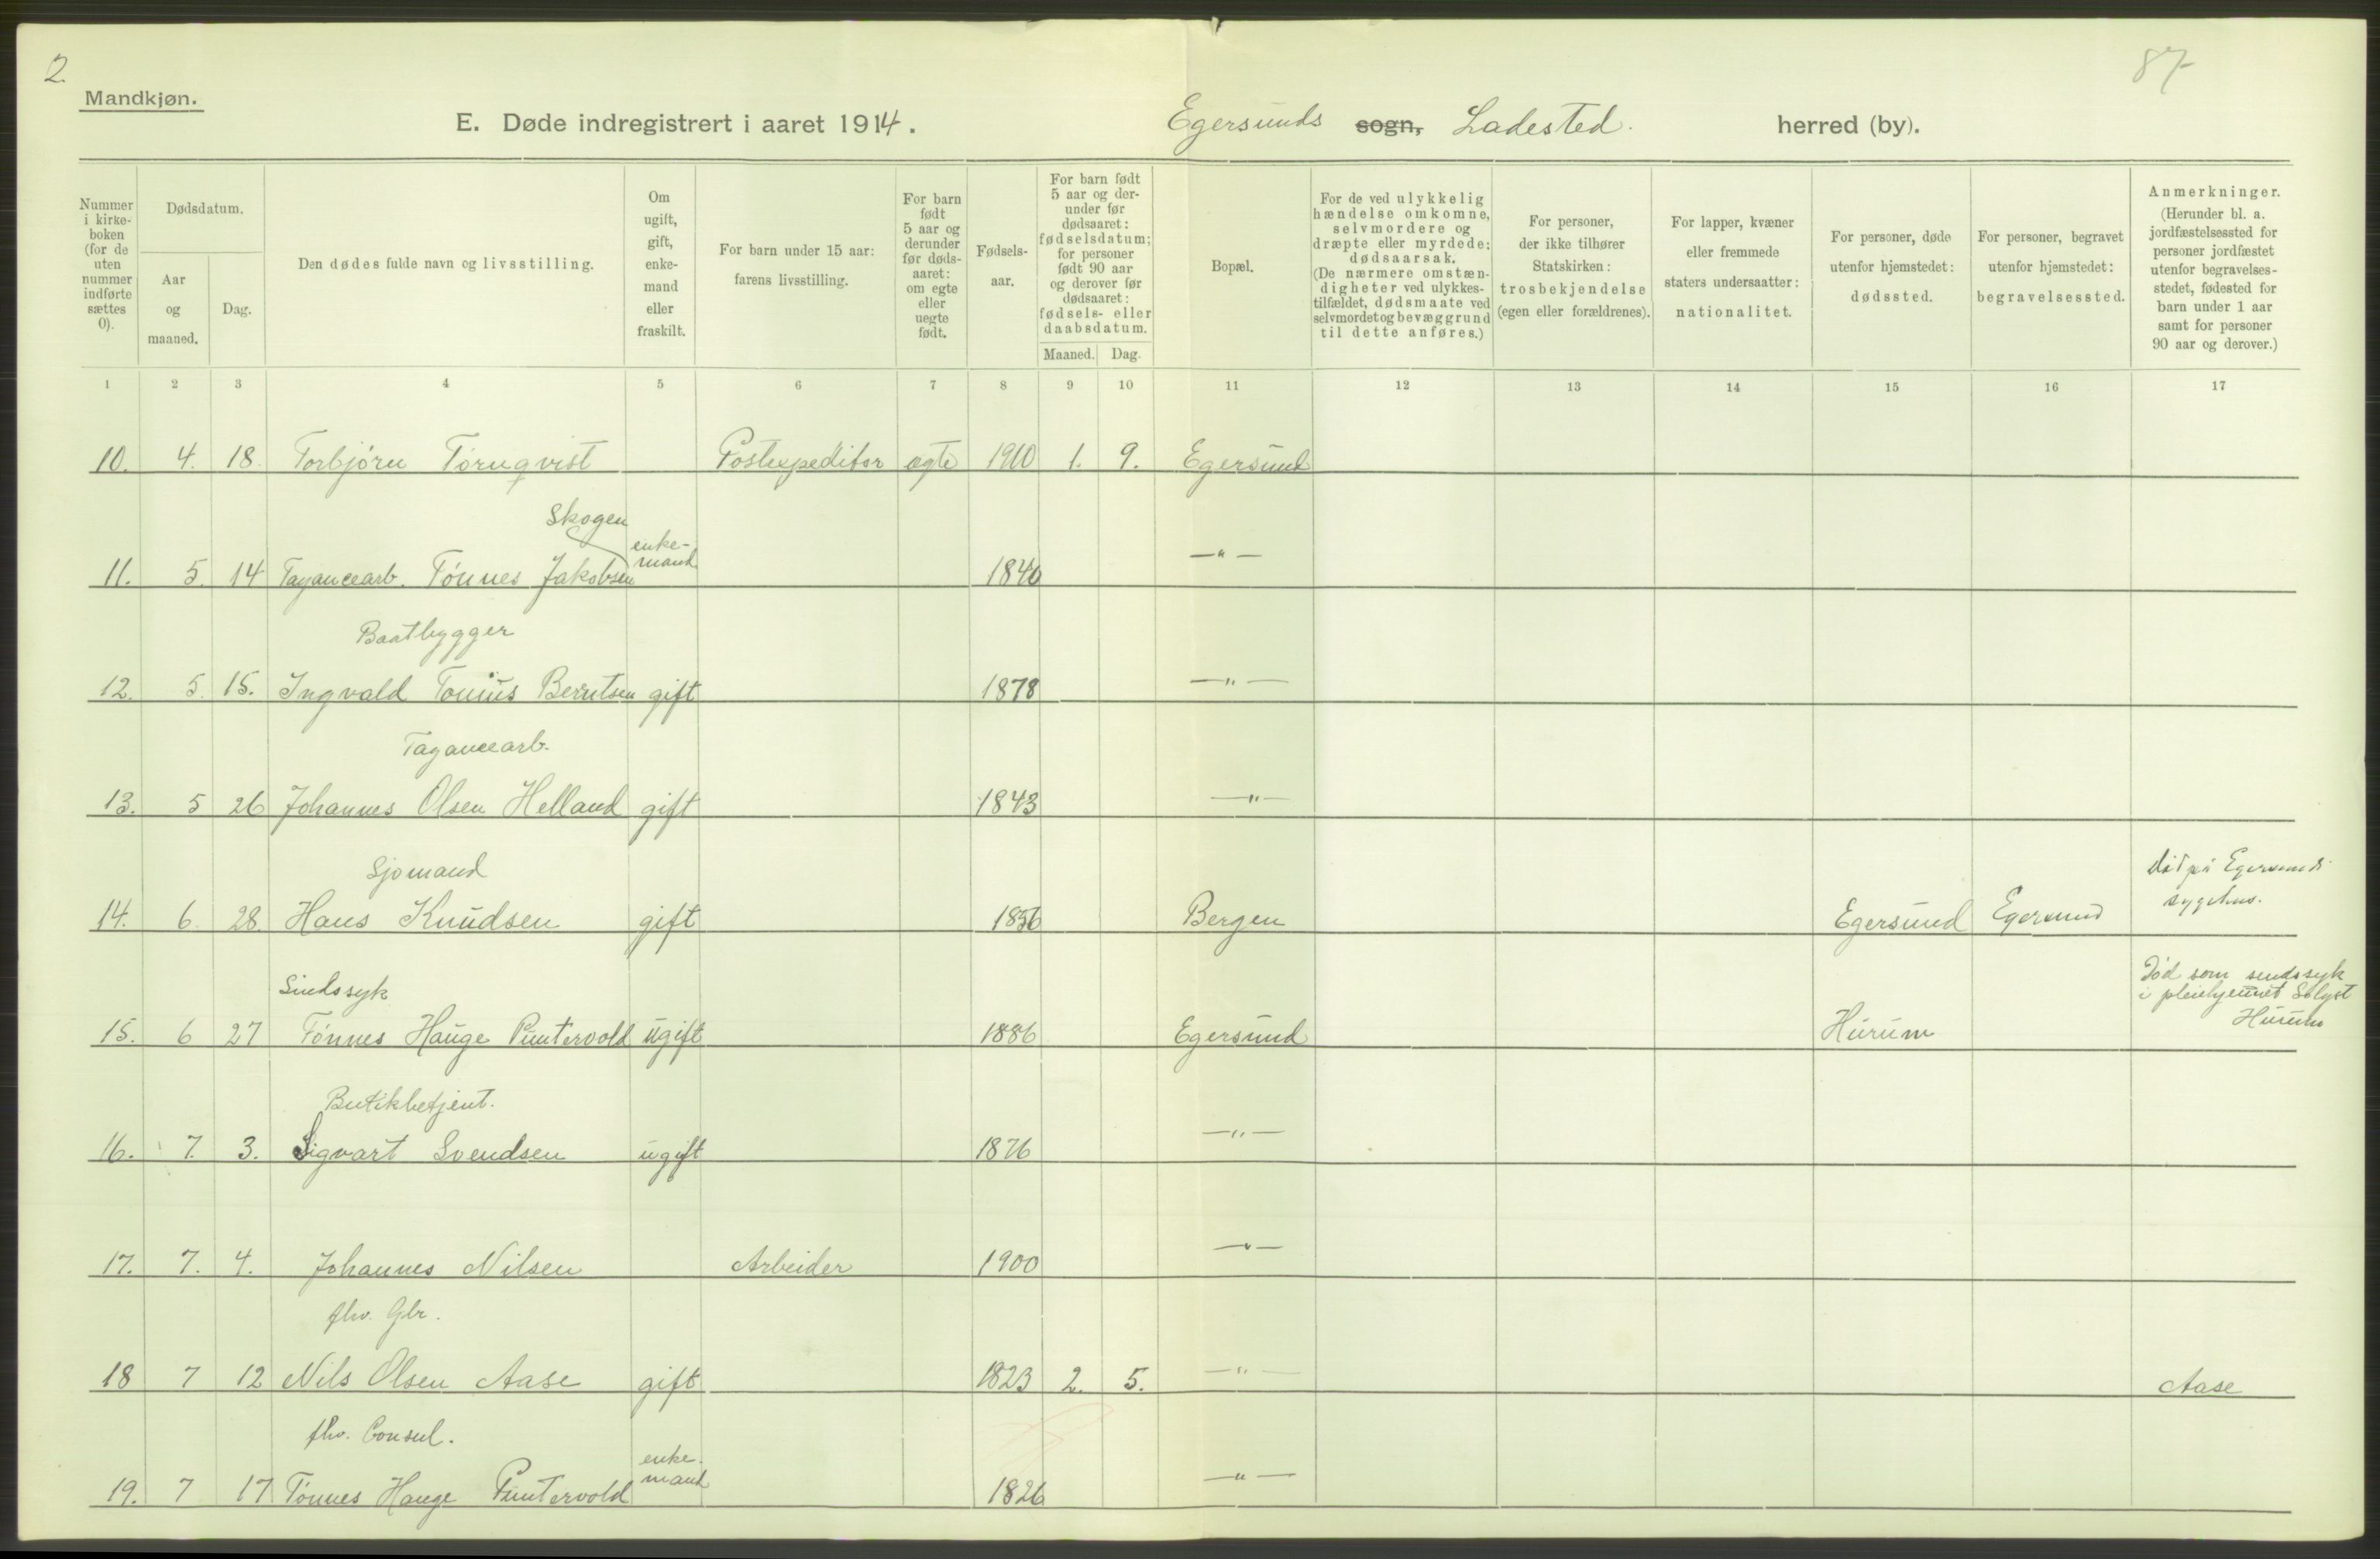 2.
87
Mandkjøn.
E. Døde indregistrert i aaret 1914.
Egersunds sogn, Ladested. herred (by).
Nummer i kirke-boken (for de uten nummer indførte sættes 0).
Dødsdatum.
Aar og maaned.
Dag.
Den dødes fulde navn og livsstilling.
Om ugift, gift, enke-mand eller fraskilt.
For barn under 15 aar: farens livsstilling.
For barn født 5 aar og derunder før døds-aaret: om egte eller uegte født.
Fødsels-aar.
For barn født 5 aar og der-under før dødsaaret: fødselsdatum; for personer født 90 aar og derover før dødsaaret: fødsels- eller daabsdatum.
Maaned.
Dag.
Bopæl.
For de ved ulykkelig hændelse omkomne, selvmordere og dræpte eller myrdede: dødsaarsak. (De nærmere omstæn-digheter ved ulykkes-tilfældet, dødsmaate ved selvmordet og bevæggrund til dette anføres.)
For personer, der ikke tilhører Statskirken: trosbekjendelse (egen eller forældrenes).
For lapper, kvæner eller fremmede staters undersaatter: nationalitet.
For personer, døde utenfor hjemstedet: dødssted.
For personer, begravet utenfor hjemstedet: begravelsessted.
Anmerkninger. (Herunder bl. a. jordfæstelsessted for personer jordfæstet utenfor begravelses-stedet, fødested for barn under 1 aar samt for personer 90 aar og derover.)
1 2 3 4 5 6 7 8 9 10 11 12 13 14 15 16 17
10. 4. 18. Torbjörn Törnqvist Postexpeditør egte 1910 1. 9. Egersund
Skogen
enke-mand
11. 5. 14 Fayancearb. Tönnes Jakobsen 1840 —"—
Baatbygger
12. 5. 15. Ingvald Tonius Berntsen gift 1878 —"—
Fayancearb.
13. 5 26 Johannes Olsen Helland gift 1843 —"—
Sjømand
14. 6. 28. Hans Knudsen gift 1856 Bergen Egersund Egersund
død på Egersunds sygehus.
Sindssyk
15. 6 27 Tönnes Hauge Puntervold ugift 1886 Egersund Hurum
Død som sindssyk
i pleiehjemmet Solyst
Hurum
Butikbetjent.
16. 7. 3. Sigvart Svendsen ugift 1876 —"—
17. 7. 4. Johannes Nilsen Arbeider 1900 —"—
fhv. Gbr.
18 7 12 Nils Olsen Aase gift 1823 2. 5. —"— Aase
fhv. Consul.
enke-mand
19. 7 17 Tönnes Hauge Puntervold 1826 —"—